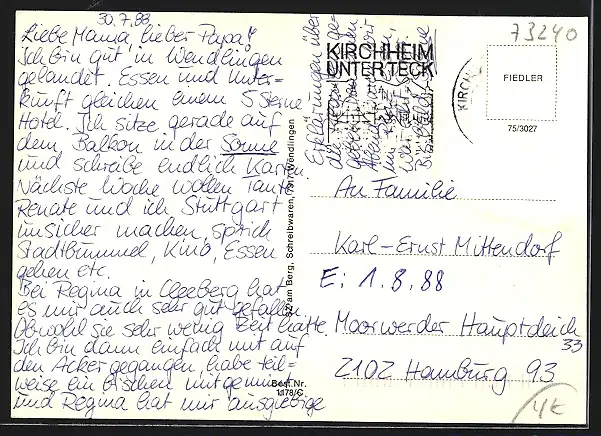 30.7.88
Liebe Mama, lieber Papa!
Ich bin gut in Wendlingen
gelandet. Essen und Unter-
kunft gleichen einem 5 Sterne
Hotel. Ich sitze gerade auf
dem Balkon in der Sonne
und schreibe endlich Karten.
Nächste Woche wollen Tante
Renate und ich Stuttgart
unsicher machen, sprich
Stadtbummel, Kino, Essen
gehen etc.
Bei Regina in Cleeberg hat
es mir auch sehr gut gefallen.
Obwohl sie sehr wenig Zeit hatte.
Ich bin dann einfach mit auf
den Acker gegangen, habe teil-
weise ein bischen mitgemis
und Regina hat mir ausgiebige
Erklärungen über
KIRCHHEIM
UNTER TECK
KIRCH
73240
FIEDLER
75/3027
Schreibwaren, 7317 Wendlingen
Best.Nr.
1178/C
An Familie
Karl-Ernst Mittendorf
E: 1.8.88
Moorwerder Hauptdeich
33
2102 Hamburg 93
4E